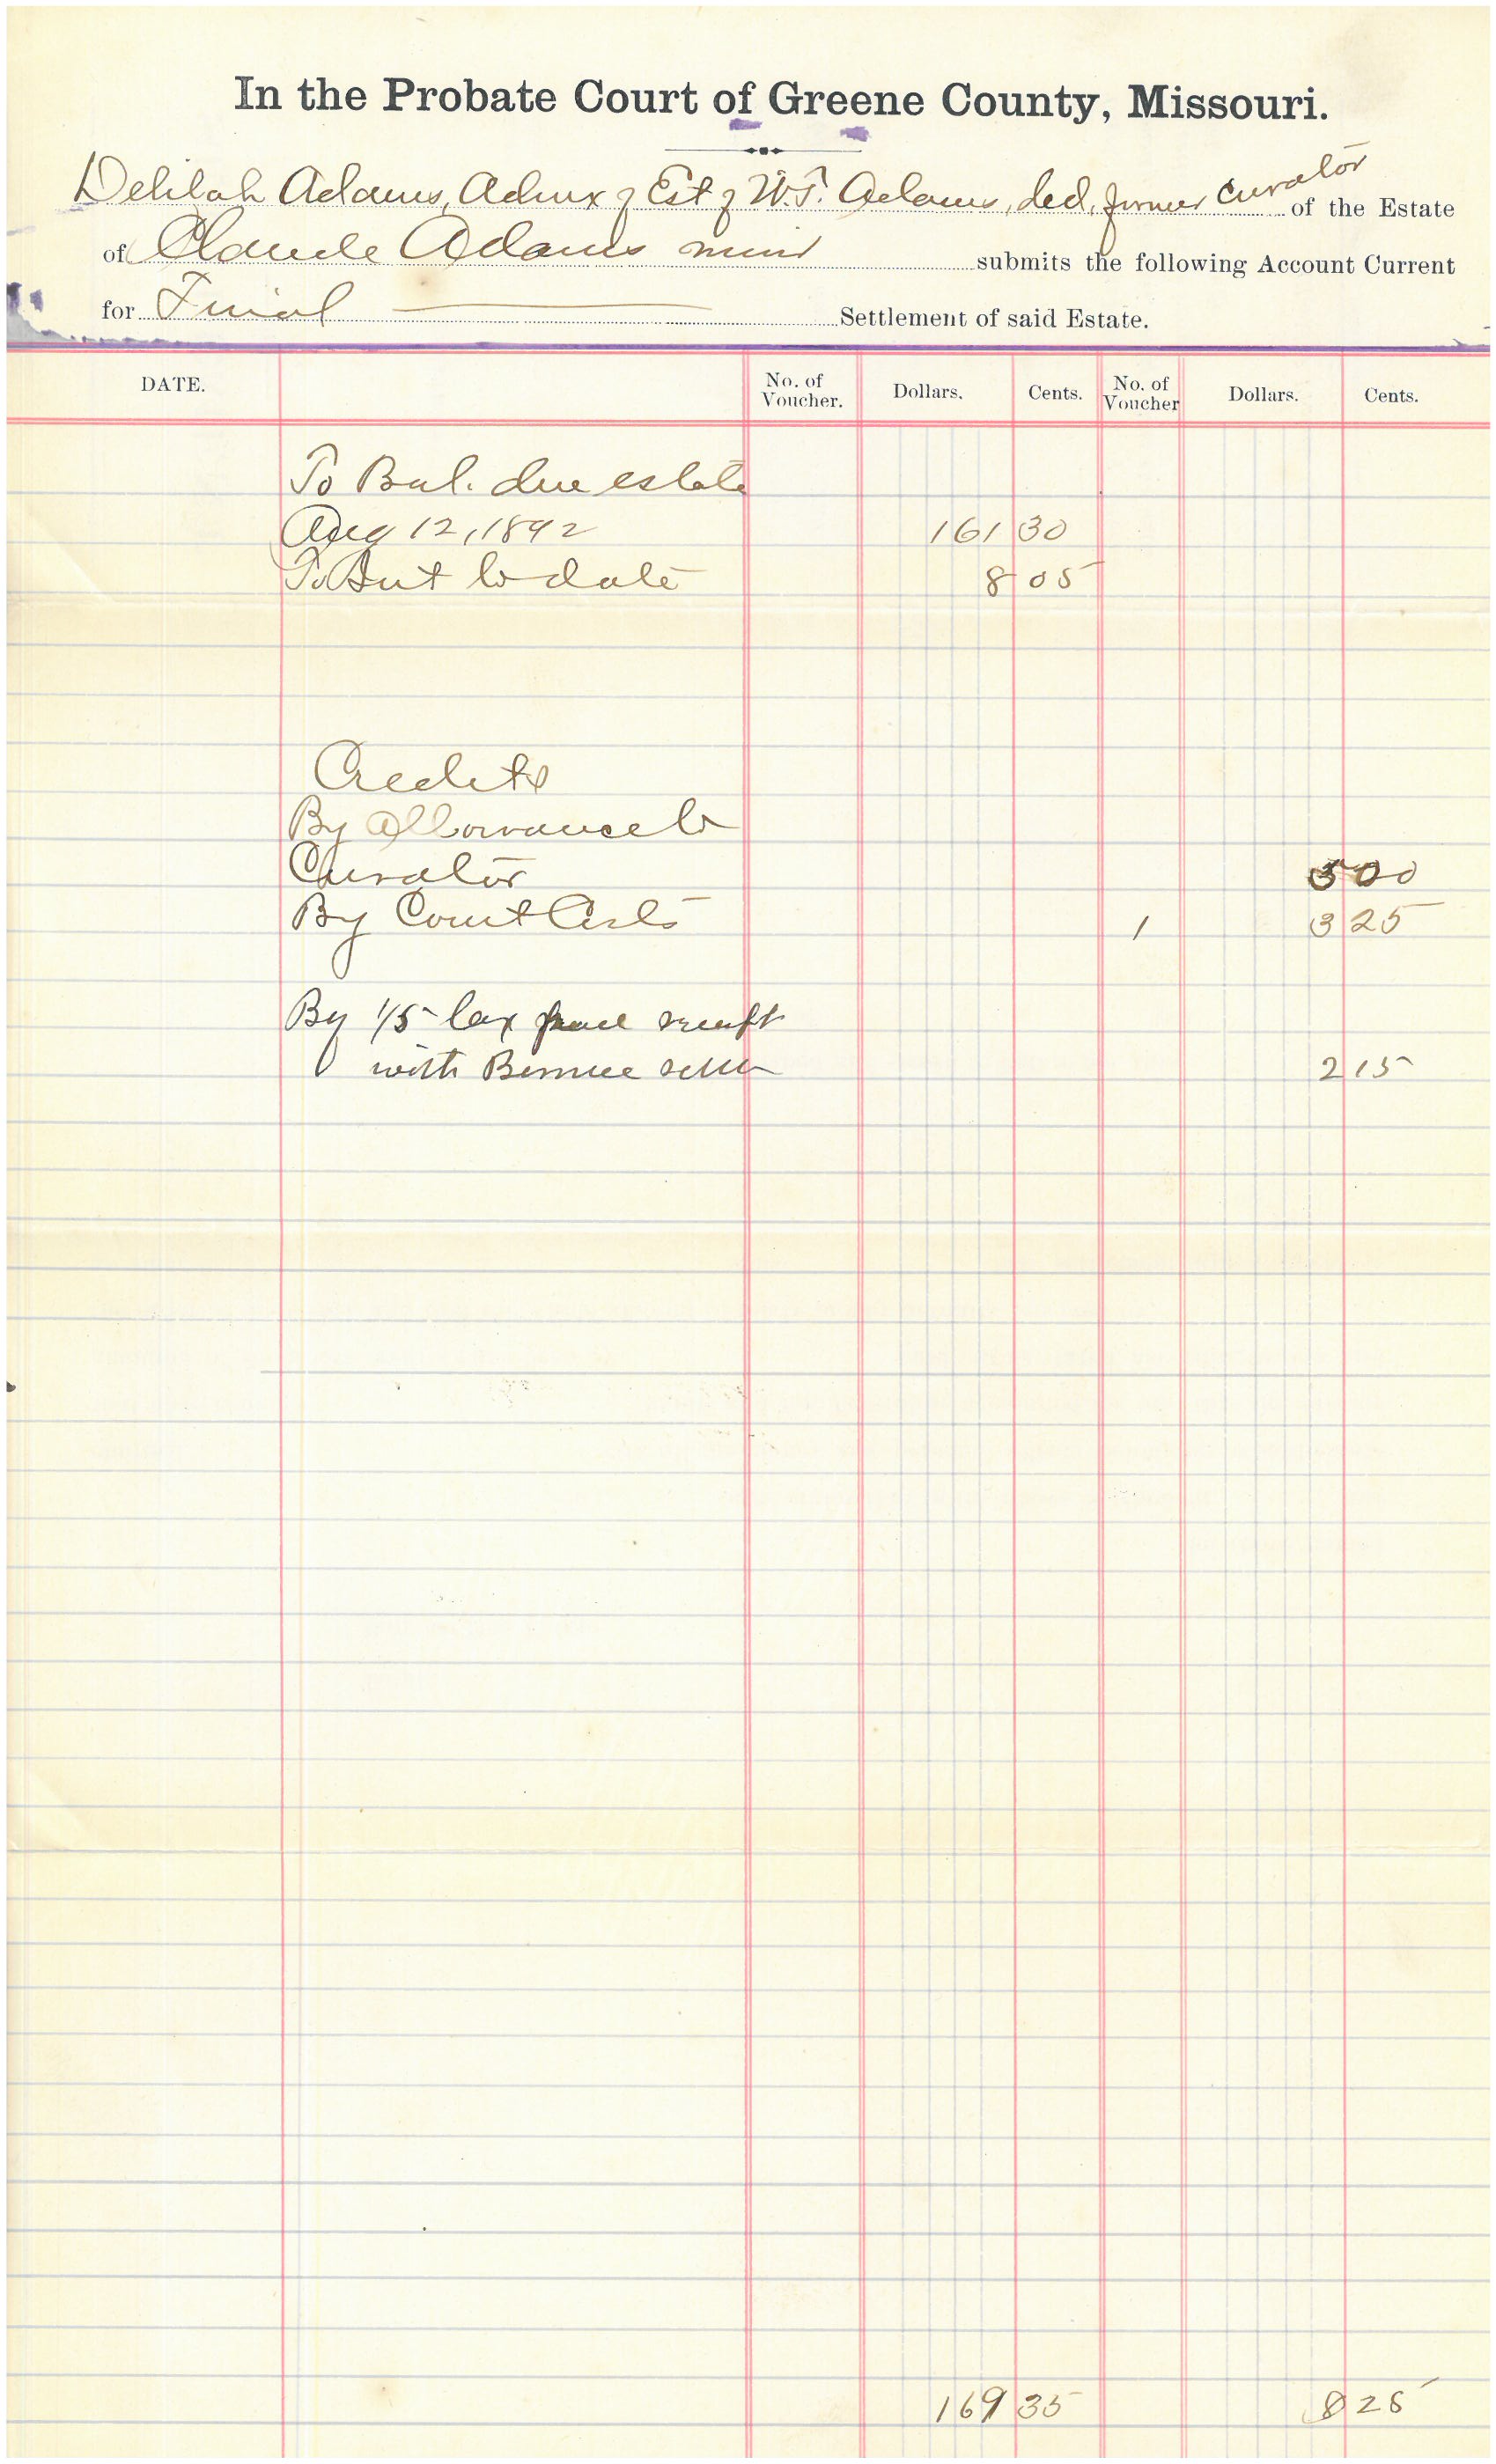 In the Probate Court of Greene County, Missouri.
Delilah Adams, Admx of Est of W.T. Adams, ded, former curator of the Estate
of Claude Adams minor submits the following Account Current
for Final Settlement of said Estate.
DATE. No. of Voucher. Dollars. Cents. No. of Voucher Dollars. Cents.
To Bal. due estate
Aug 12, 1892 161 30
To Int to date 8 05
Credits
By Allowance to
Curator 5 00
By Court Costs 1 3 25
By 1/5 tax
with Bernice 2 15
169 35 8 25